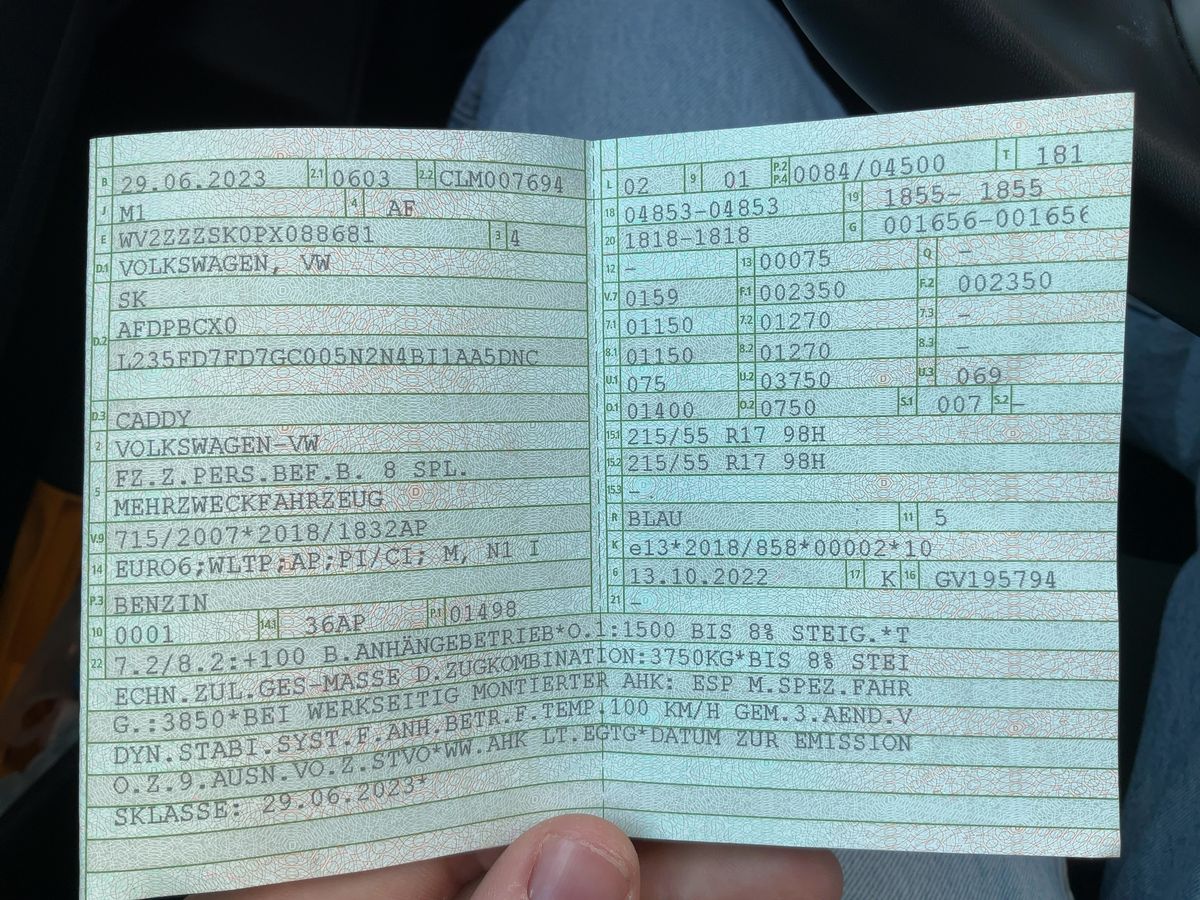 B 29.06.2023 2.1 0603 2.2 CLM007694
J M1 4 AF
E WV2ZZZSK0PX088681 3 4
D.1 VOLKSWAGEN, VW
SK
D.2 AFDPBCX0
L235FD7FD7GC005N2N4BI1AA5DNC
D.3 CADDY
2 VOLKSWAGEN-VW
5 FZ.Z.PERS.BEF.B. 8 SPL.
MEHRZWECKFAHRZEUG
V.9 715/2007*2018/1832AP
14 EURO6;WLTP;AP;PI/CI; M, N1 I
P.3 BENZIN
10 0001 14.1 36AP P.1 01498
L 02 9 01 P.2 P.4 0084/04500 T 181
18 04853-04853 19 1855- 1855
20 1818-1818 G 001656-001656
12 - 13 00075 Q -
V.7 0159 F.1 002350 F.2 002350
7.1 01150 7.2 01270 7.3 -
8.1 01150 8.2 01270 8.3 -
U.1 075 U.2 03750 U.3 069
O.1 01400 O.2 0750 S.1 007 S.2 -
15.1 215/55 R17 98H
15.2 215/55 R17 98H
15.3 -
R BLAU 11 5
K e13*2018/858*00002*10
6 13.10.2022 17 K 16 GV195794
21 -
22 7.2/8.2:+100 B.ANHÄNGEBETRIEB*O.1:1500 BIS 8% STEIG.*T
ECHN.ZUL.GES-MASSE D.ZUGKOMBINATION:3750KG*BIS 8% STEI
G.:3850*BEI WERKSEITIG MONTIERTER AHK: ESP M.SPEZ.FAHR
DYN.STABI.SYST.F.ANH.BETR.F.TEMP.100 KM/H GEM.3.AEND.V
O.Z.9.AUSN.VO.Z.STVO*WW.AHK LT.EGTG*DATUM ZUR EMISSION
SKLASSE: 29.06.2023*